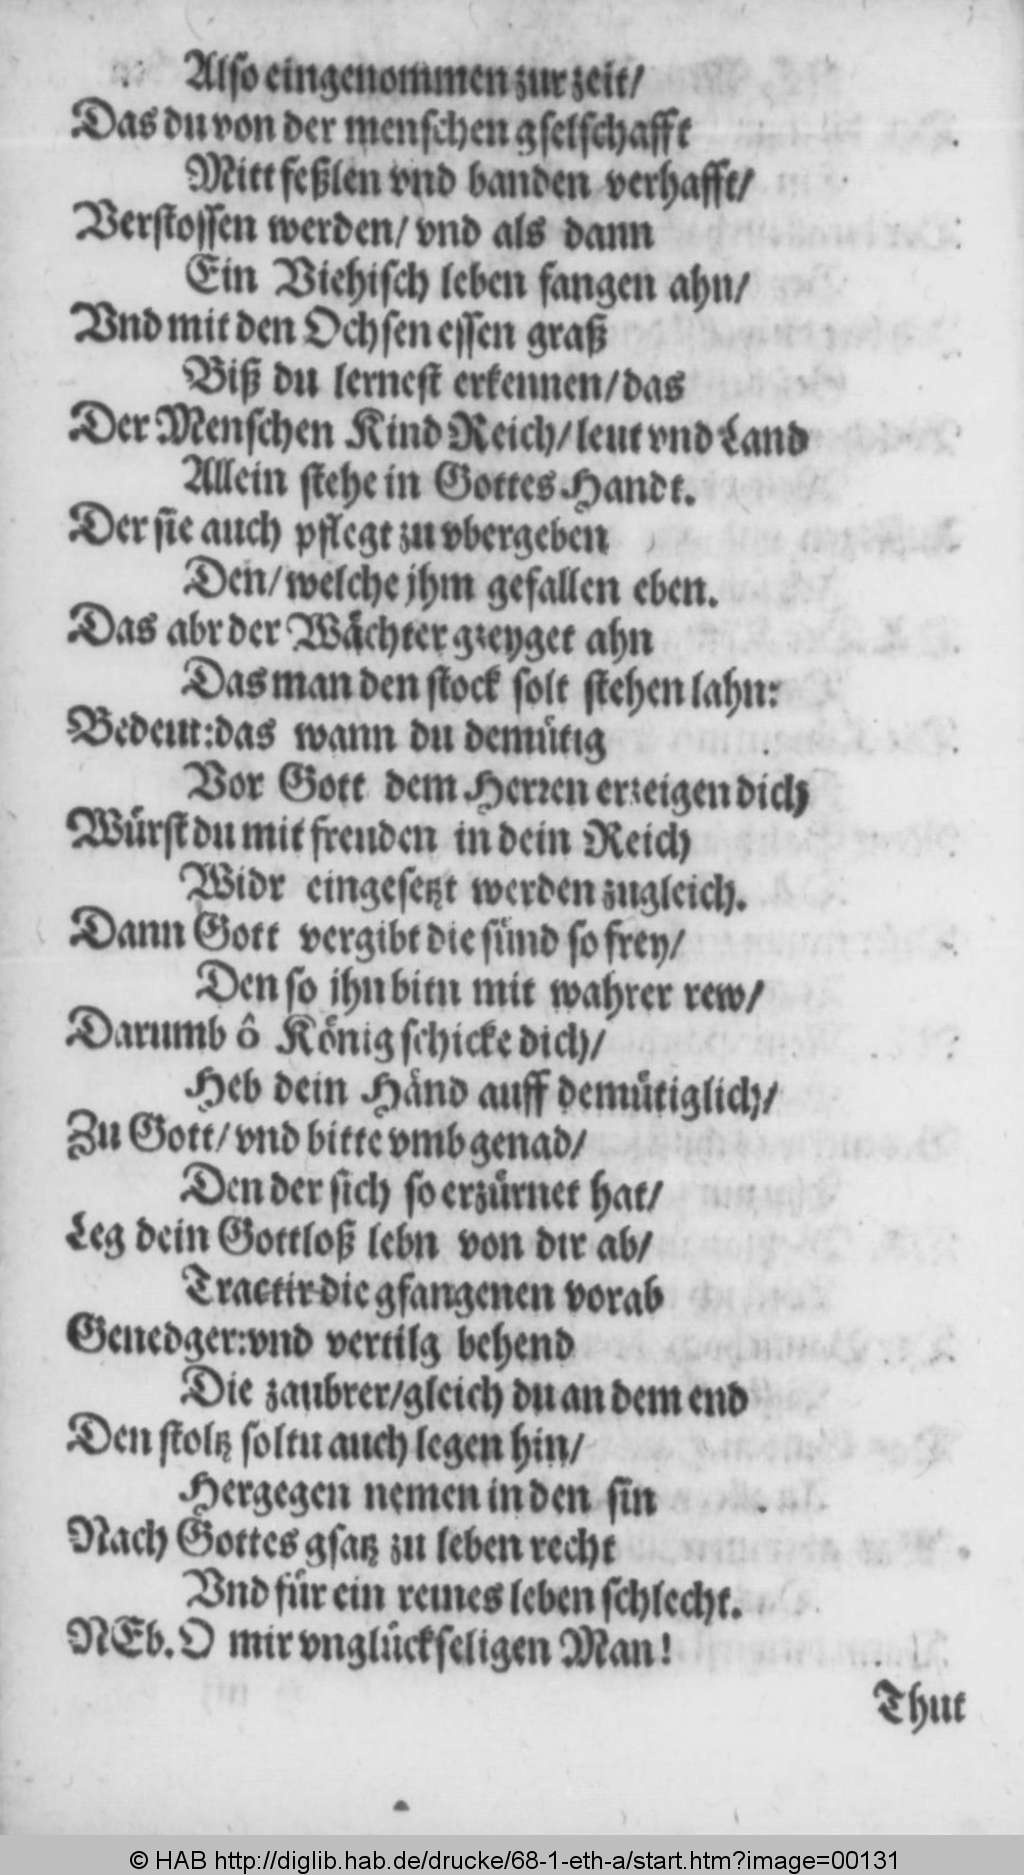 Also eingenommen zur zeit/
Das du von der menschen gselschafft
Mitt feßlen vnd banden verhafft/
Verstossen werden/ vnd als dann
Ein Viehisch leben fangen ahn/
Vnd mit den Ochsen essen graß
Biß du lernest erkennen/ das
Der Menschen Kind Reich/ leut vnd Land
Allein stehe in Gottes Handt.
Der sie auch pflegt zu vbergeben
Den/ welche jhm gefallen eben.
Das abr der Wächter gzeyget ahn
Das man den stock solt stehen lahn:
Bedeut: das wann du demütig
Vor Gott dem Herren erzeigen dich
Würst du mit freuden in dein Reich
Widr eingesetzt werden zugleich.
Dann Gott vergibt die sünd so frey/
Den so jhn bittn mit wahrer rew/
Darumb ô König schicke dich/
Heb dein Händ auff demütiglich/
Zu Gott/ vnd bitte vmb genad/
Den der sich so erzürnet hat/
Leg dein Gottloß lebn von dir ab/
Tractir die gfangenen vorab
Genedger: vnd vertilg behend
Die zaubrer/ gleich du an dem end
Den stoltz soltu auch legen hin/
Hergegen nemen in den sin
Nach Gottes gsatz zu leben recht
Vnd für ein reines leben schlecht.
NEb. O mir vnglückseligen Man!
Thut
© HAB http://diglib.hab.de/drucke/68-1-eth-a/start.htm?image=00131